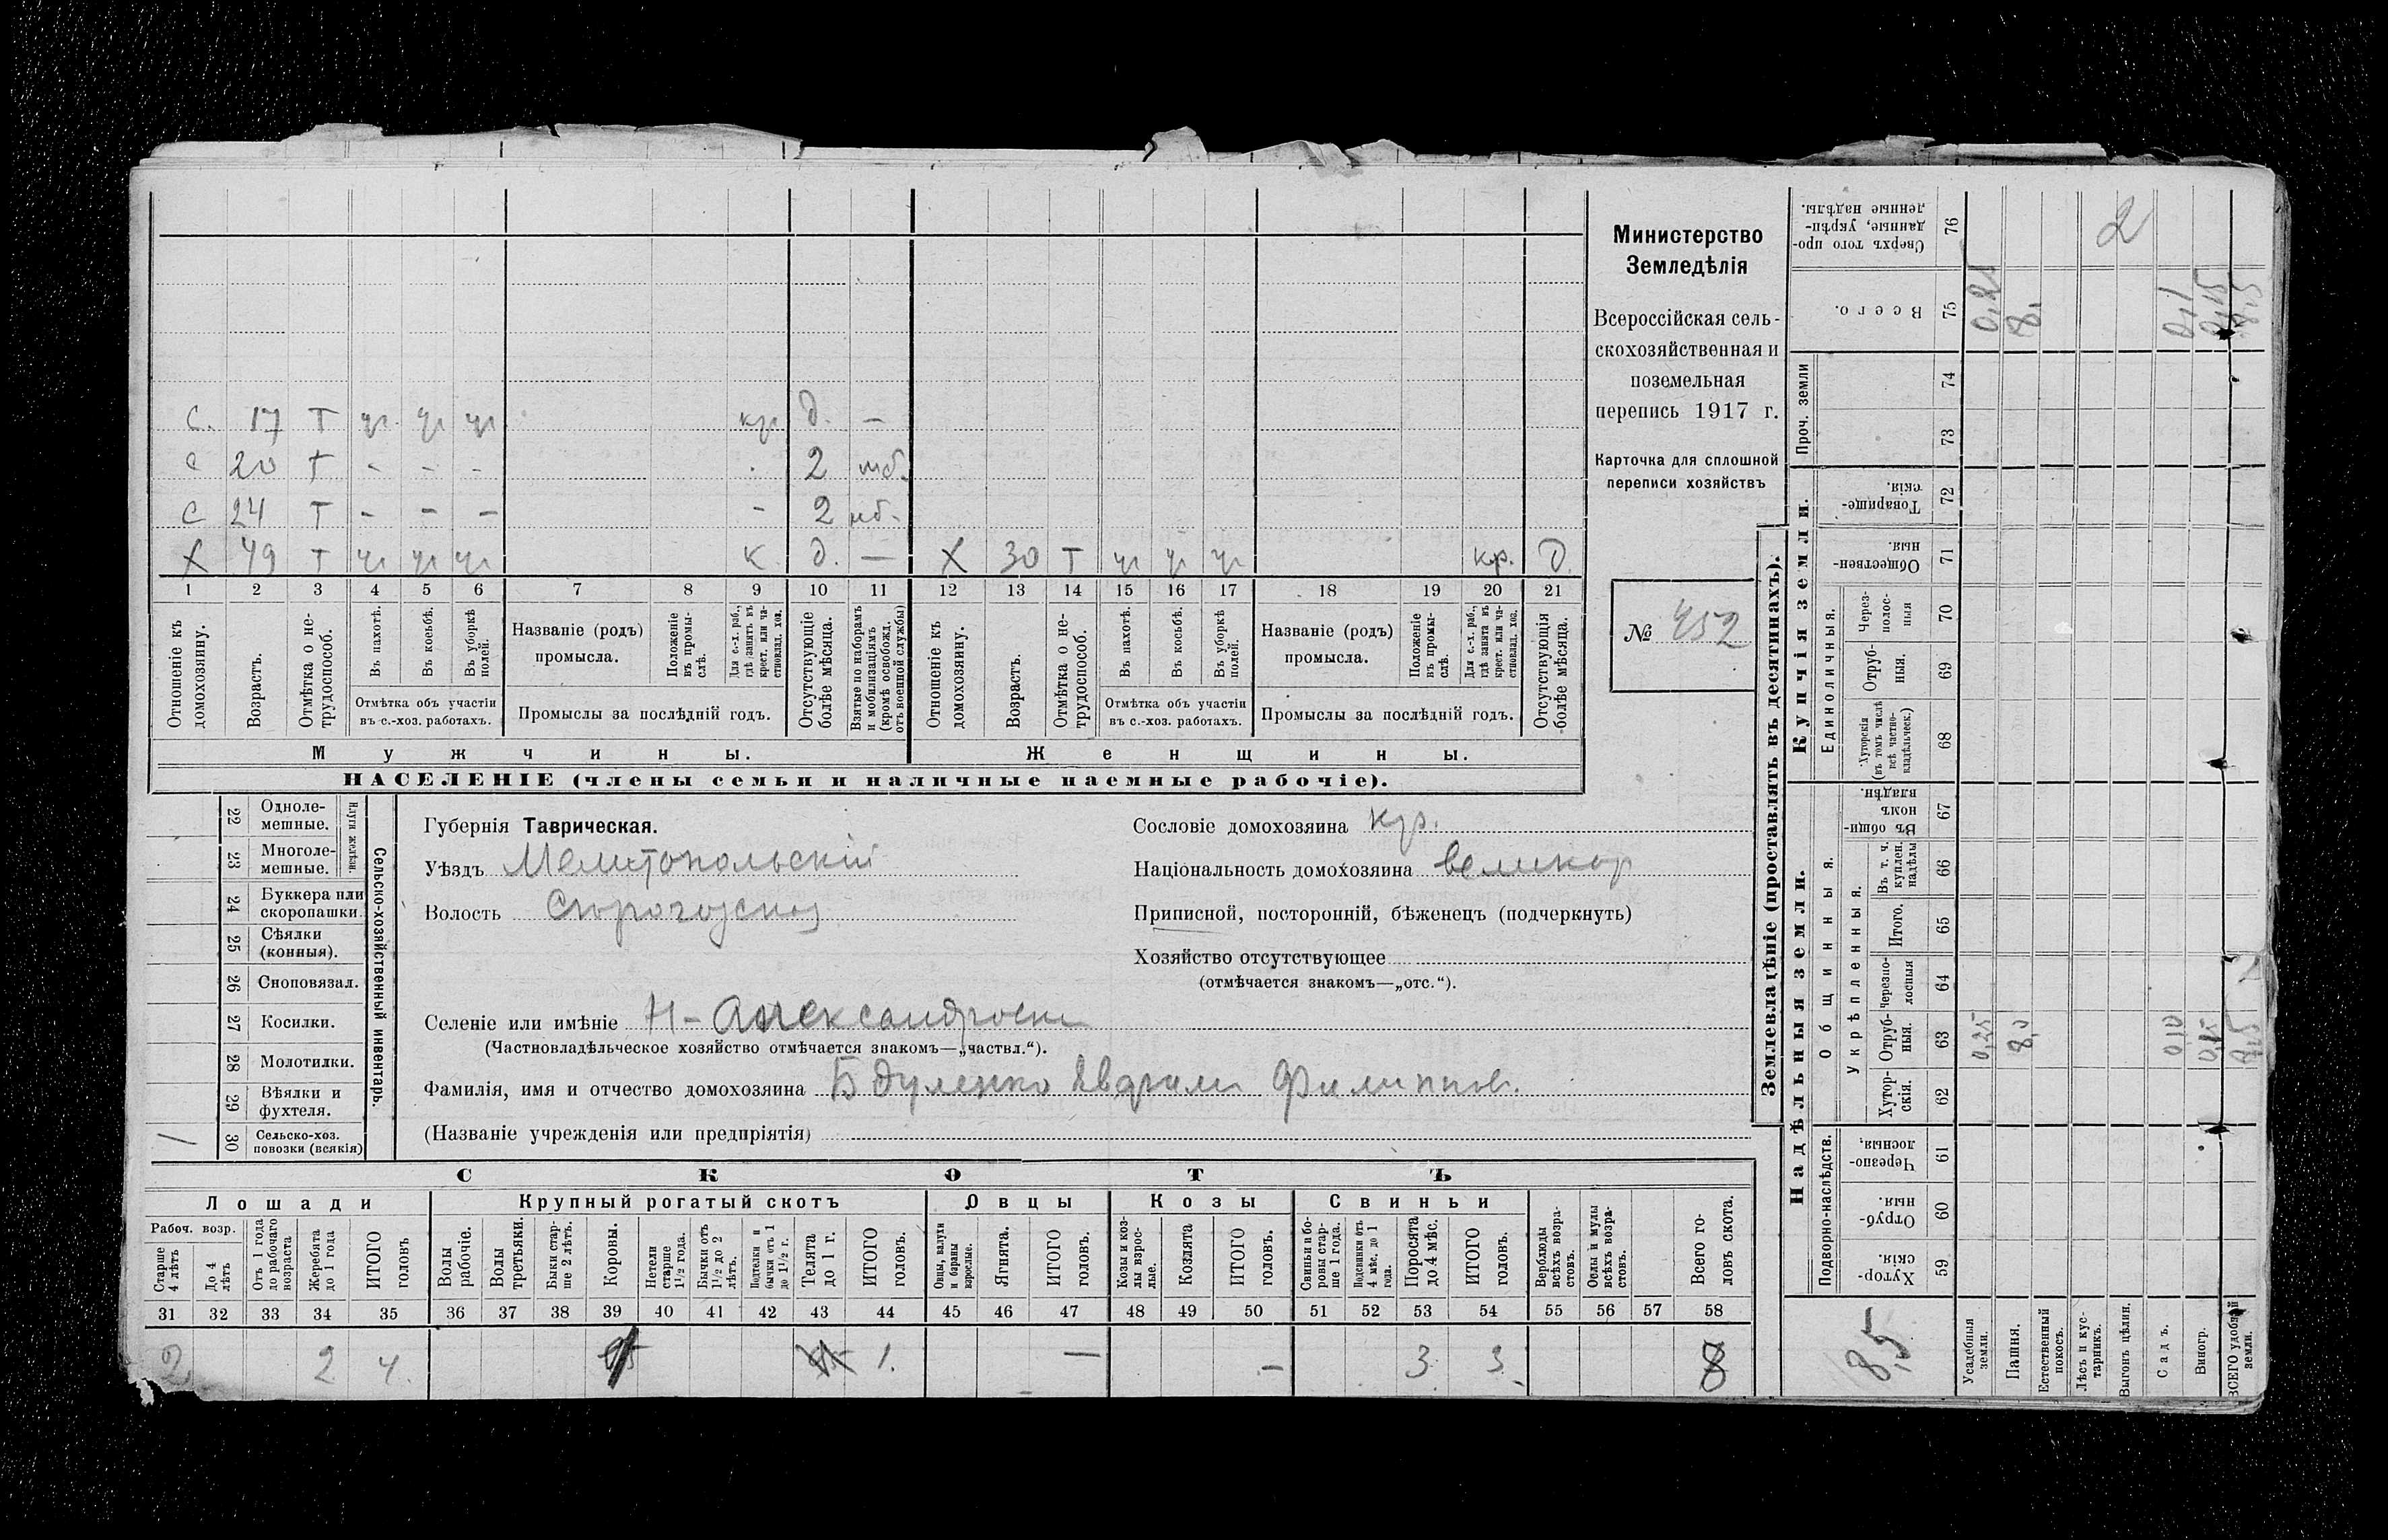 С. 17 Т уч уч уч кр д. —
С 20 Т - - - . 2 мб.
С 24 Т - - - - 2 мб.
Х 49 Т уч уч уч к. д. — Х 30 Т уч уч уч кр. д.
1 2 3 4 5 6 7 8 9 10 11 12 13 14 15 16 17 18 19 20 21
Отношеніе къ домохозяину.
Возрастъ.
Отмѣтка о нетрудоспособ.
Въ пахотѣ.
Въ косьбѣ.
Въ уборкѣ полей.
Отмѣтка объ участіи
въ с.-хоз. работахъ.
Названіе (родъ)
промысла.
Положеніе въ промыслѣ.
Для с.-х. раб., гдѣ занятъ въ крест. или частновлад. хоз.
Промыслы за послѣдній годъ.
Отсутствующіе болѣе мѣсяца.
Взятые по наборамъ и мобилизаціямъ (кромѣ освобожд. отъ военной службы)
Отношеніе къ домохозяину.
Возрастъ.
Отмѣтка о нетрудоспособ.
Въ пахотѣ.
Въ косьбѣ.
Въ уборкѣ полей.
Отмѣтка объ участіи
въ с.-хоз. работахъ.
Названіе (родъ)
промысла.
Положеніе въ промыслѣ.
Для с.-х. раб., гдѣ занята въ крест. или частновлад. хоз.
Промыслы за послѣдній годъ.
Отсутствующія болѣе мѣсяца.
Мужчины.
Женщины.
НАСЕЛЕНІЕ (члены семьи и наличные наемные рабочіе).
Министерство
Земледѣлія
Всероссійская сель-
скохозяйственная и
поземельная
перепись 1917 г.
Карточка для сплошной
переписи хозяйствъ
№ 452
Сельско-хозяйственный инвентарь.
Плуги желѣзн.
22 Одноле-
мешные.
23 Многоле-
мешные.
24 Буккера или
скоропашки.
25 Сѣялки
(конныя).
26 Сноповязал.
27 Косилки.
28 Молотилки.
29 Вѣялки и
фухтеля.
1 30 Сельско-хоз.
повозки (всякія)
Губернія Таврическая.
Уѣздъ Мелитопольскій
Волость
Селеніе или имѣніе Н-Александровка
(Частновладѣльческое хозяйство отмѣчается знакомъ—„частвл.“).
Фамилія, имя и отчество домохозяина Бдуленко Филиппов.
(Названіе учрежденія или предпріятія)
Сословіе домохозяина кр.
Національность домохозяина великор
Приписной, посторонній, бѣженецъ (подчеркнуть)
Хозяйство отсутствующее
(отмѣчается знакомъ—„отс.“).
СКОТЪ
Лошади
Крупный рогатый скотъ
Овцы
Козы
Свиньи
Рабоч. возр.
Старше 4 лѣтъ
До 4 лѣтъ
Отъ 1 года до рабочаго возраста
Жеребята до 1 года
ИТОГО головъ
Волы рабочіе.
Волы третьяки.
Быки старше 2 лѣтъ.
Коровы.
Нетели старше 1½ года.
Бычки отъ 1½ до 2 лѣтъ.
Подтелки и бычки отъ 1 до 1½ г.
Телята до 1 г.
ИТОГО головъ.
Овцы, валухи и бараны взрослые.
Ягнята.
ИТОГО головъ.
Козы и козлы взрослые.
Козлята
ИТОГО головъ.
Свиньи и боровы старше 1 года.
Подсвинки отъ 4 мѣс. до 1 года.
Поросята до 4 мѣс.
ИТОГО головъ.
Верблюды всѣхъ возрастовъ.
Ослы и мулы всѣхъ возрастовъ.
Всего головъ скота.
31 32 33 34 35 36 37 38 39 40 41 42 43 44 45 46 47 48 49 50 51 52 53 54 55 56 57 58
2 2 4. 1. — - 3 3 8
Землевладѣніе (проставлять въ десятинахъ).
Надѣльныя земли.
Купчія земли.
Проч. земли
Сверхъ того проданные, укрѣпленные надѣлы. 76 2
Всего. 75 0,21 8, 0,1 0,15 8,5
74
73
Товарищескія. 72
Общественныя. 71
Единоличныя.
Черезполосныя 70
Отрубныя. 69
Хуторскія (въ томъ числѣ всѣ частновладѣльческ.) 68
Общинныя.
Въ общиномъ владѣн. 67
Укрѣпленныя.
Въ т. ч. куплен. надѣлы 66
Итого. 65
Черезполосныя 64
Отрубныя. 63 0,25 8,0 0,10 0,15 8,5
Хуторскія. 62
Подворно-наслѣдств.
Черезполосныя, 61
Отрубныя. 60
Хуторскія. 59
8,5
Усадебныя земли.
Пашня.
Естественный покосъ.
Лѣсъ и кустарникъ.
Выгонъ цѣлин.
Садъ.
Виногр.
ВСЕГО удобной земли.